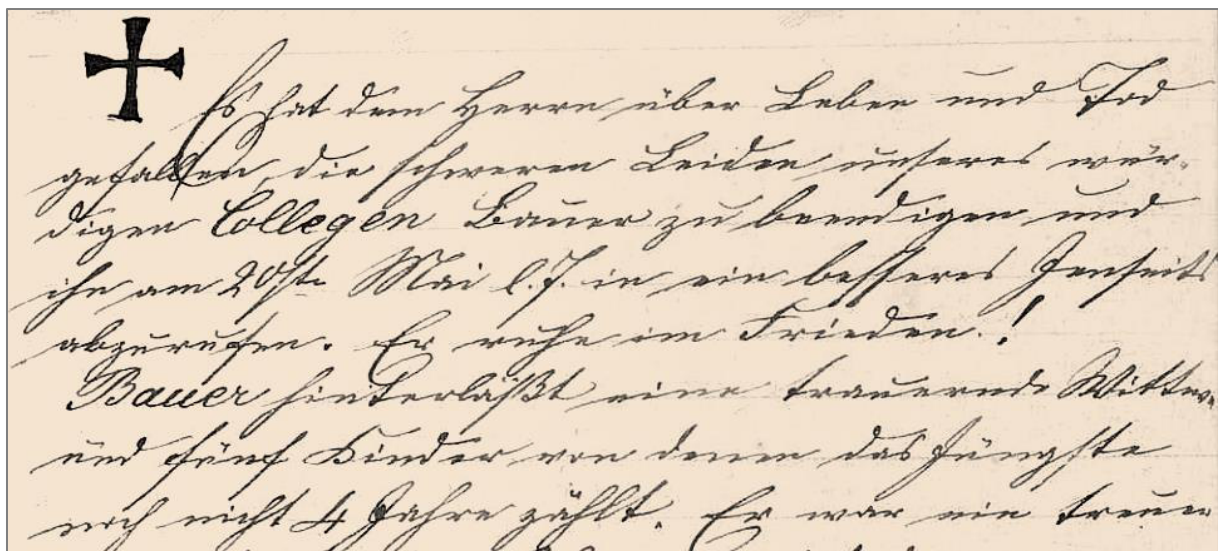 Es hat dem Herrn über Leben und Tod
gefallen, die schweren Leiden unseres wür-
digen Collegen Bauer zu beendigen und
ihn am 20st. Mai l. J. in ein besseres Jenseits
abzurufen. Er ruhe im Frieden.!
Bauer hinterläßt eine trauernde Wittwe
und fünf Kinder von denen das Jüngste
noch nicht 4 Jahre zählt. Er war ein treuer